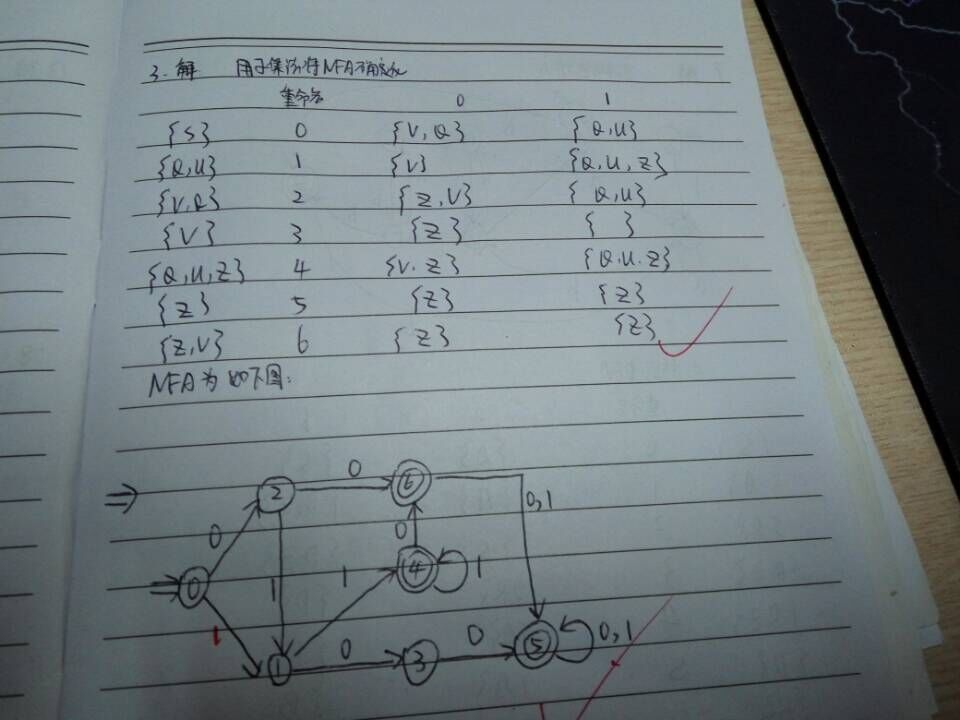 3. 解 用子集法将NFA确定化
重命名 0 1
{S} 0 {V,Q} {Q,U}
{Q,U} 1 {V} {Q,U,Z}
{V,Q} 2 {Z,V} {Q,U}
{V} 3 {Z} { }
{Q,U,Z} 4 {V.Z} {Q.U.Z}
{Z} 5 {Z} {Z}
{Z,V} 6 {Z} {Z}
NFA为如下图:
⇒ 2 0 6
0 0,1
0 1 1 0 4 1
1
1 0 3 0 5 0,1